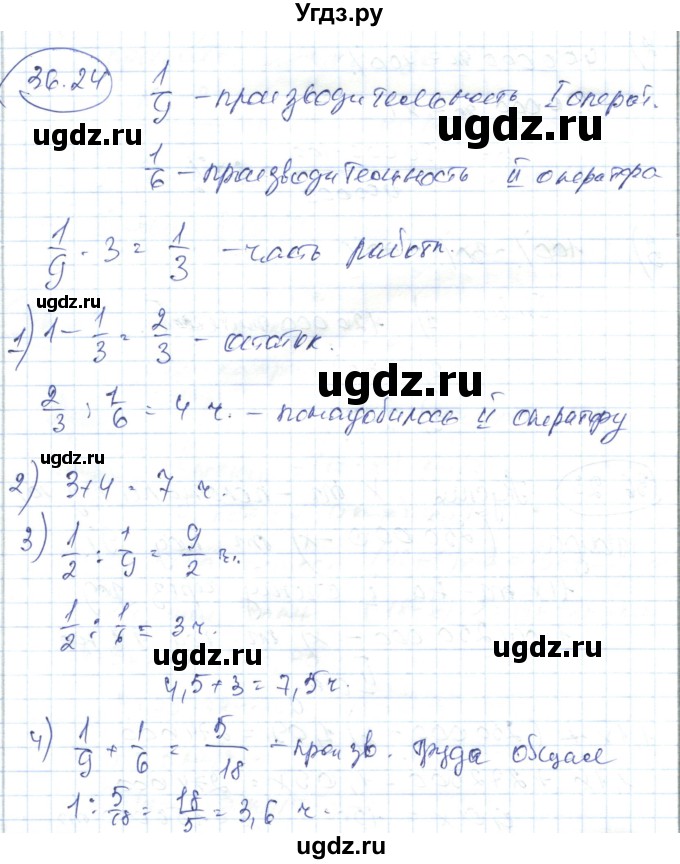 Угдз.ру
36.24
1/9 – производительность I операт.
ugdz.ru
ugdz.ru
1/6 – производительность II оператора
1/9 · 3 = 1/3 – часть работы.
ugdz.ru
1) 1 – 1/3 = 2/3 – остаток.
ugdz.ru
2/3 : 1/6 = 4 ч. – понадобилось II оператору
ugdz.ru
2) 3+4 = 7 ч.
3) 1/2 : 1/9 = 9/2 ч.
1/2 : 1/6 = 3 ч.
ugdz.ru
ugdz.ru
4,5+3 = 7,5 ч.
4) 1/9 + 1/6 = 5/18 – произв. труда общая
1 : 5/18 = 18/5 = 3,6 ч.
ugdz.ru
ugdz.ru